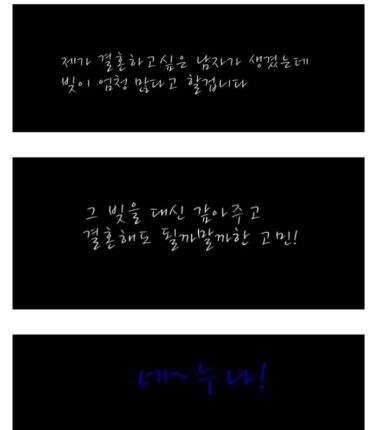 제가 결혼하고싶은 남자가 생겼는데
빚이 엄청 많다고 할겁니다
그 빚을 대신 갚아주고
결혼해도 될까말까한 고민!
네~누나!